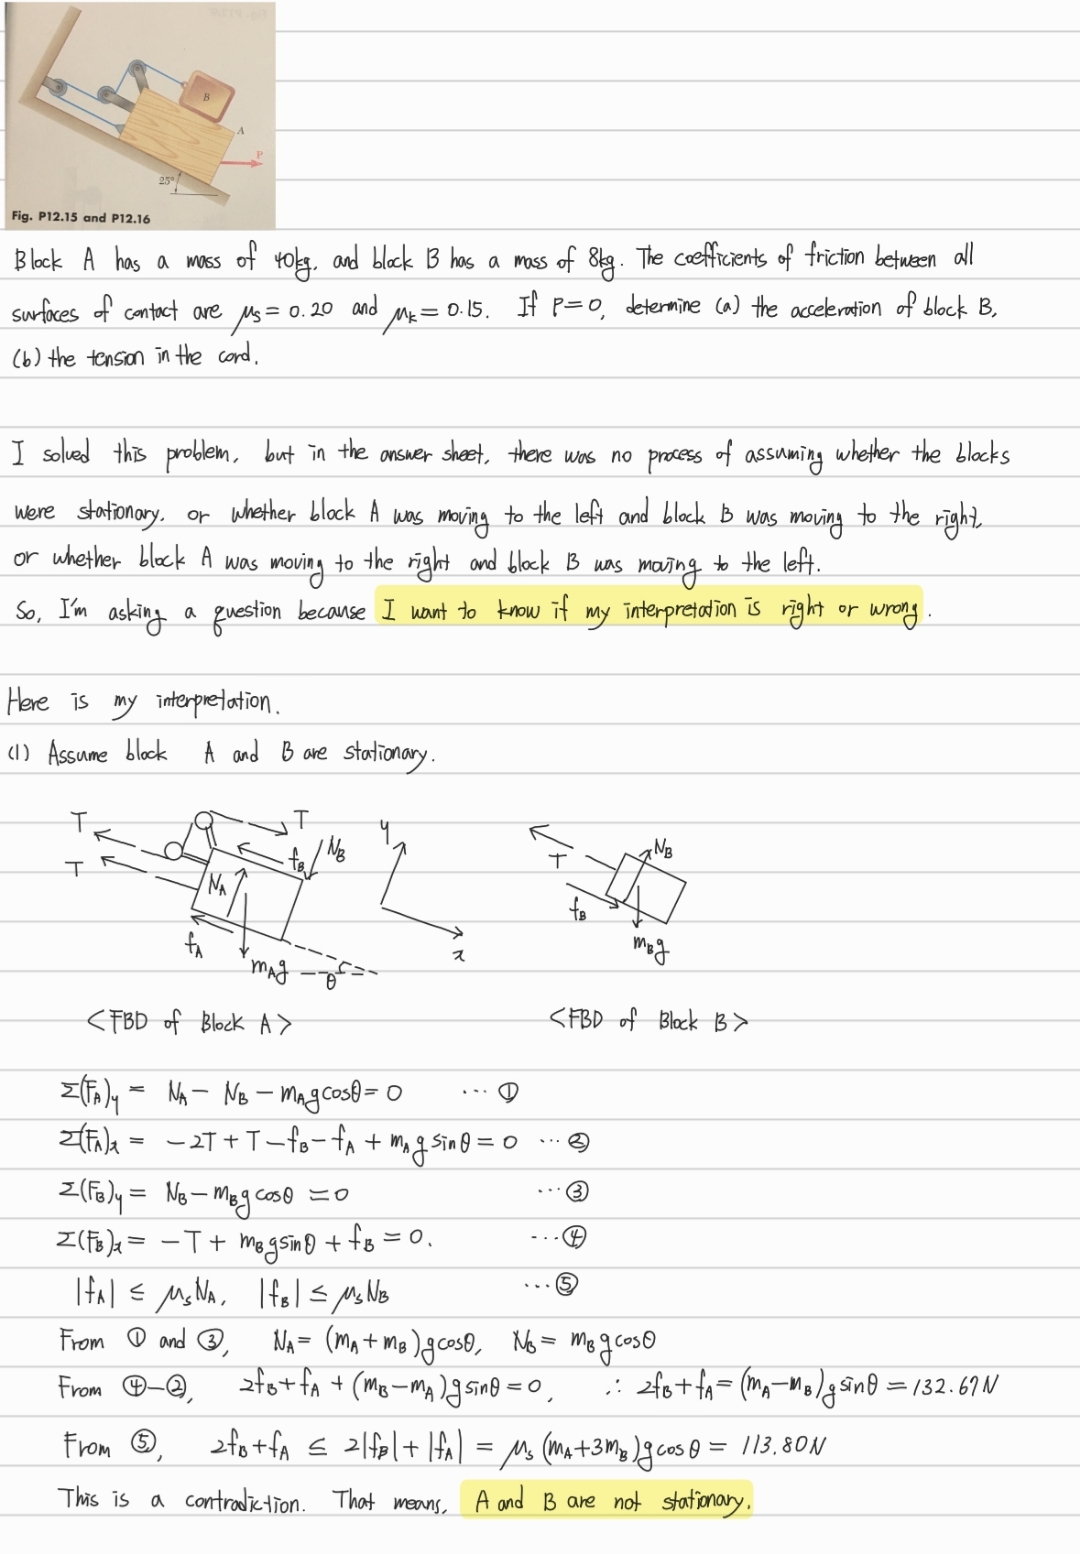 B
A
P
25°
Fig. P12.15 and P12.16
Block A has a mass of 40kg, and block B has a mass of 8kg. The coefficients of friction between all
surfaces of contact are μs = 0.20 and μk = 0.15. If P=0, determine (a) the acceleration of block B,
(b) the tension in the cord.
I solved this problem, but in the answer sheet, there was no process of assuming whether the blocks
were stationary, or whether block A was moving to the left and block B was moving to the right,
or whether block A was moving to the right and block B was moving to the left.
So, I'm asking a question because I want to know if my interpretation is right or wrong.
Here is my interpretation.
(1) Assume block A and B are stationary.
T T NB y
T fB NA
fA mAg θ x
T NB
fB mBg
<FBD of Block A> <FBD of Block B>
Σ(FA)y = NA - NB - mAg cosθ = 0 ... ①
Σ(FA)x = -2T + T - fB - fA + mAg sinθ = 0 ... ②
Σ(FB)y = NB - mBg cosθ = 0 ... ③
Σ(FB)x = -T + mBg sinθ + fB = 0. ... ④
|fA| ≤ μsNA, |fB| ≤ μsNB ... ⑤
From ① and ③, NA = (mA + mB)g cosθ, NB = mBg cosθ
From ④-②, 2fB + fA + (mB - mA)g sinθ = 0, ∴ 2fB + fA = (mA - mB)g sinθ = 132.67N
From ⑤, 2fB + fA ≤ 2|fB| + |fA| = μs(mA + 3mB)g cosθ = 113.80N
This is a contradiction. That means, A and B are not stationary.